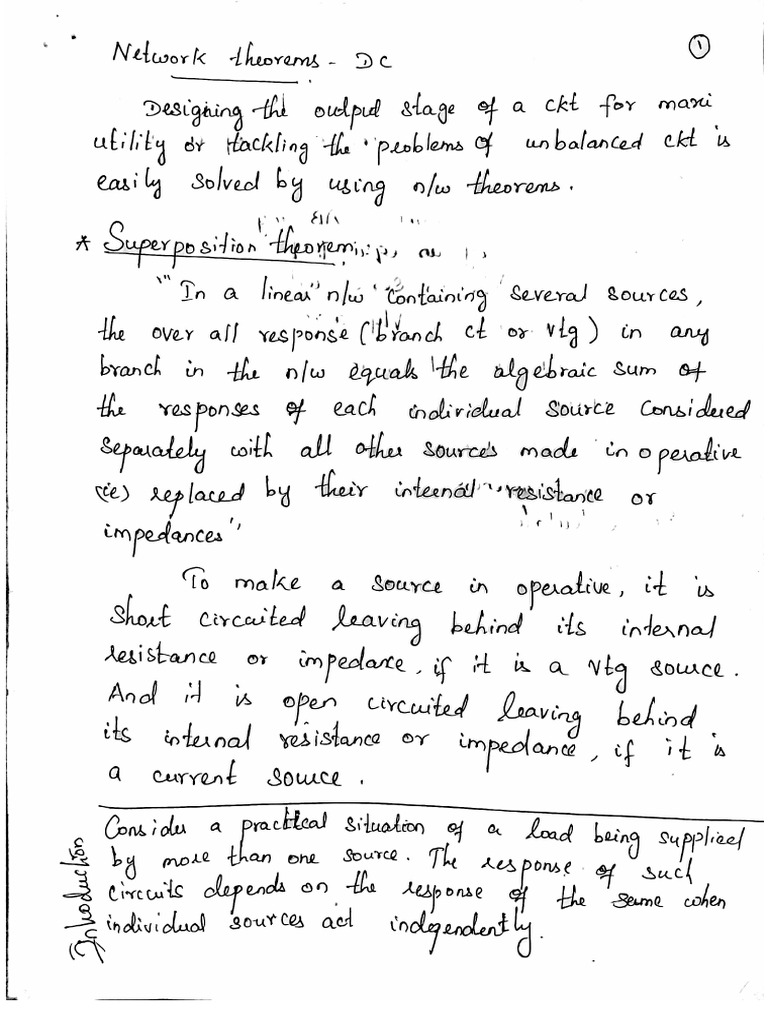 Network theorems - DC
1
Designing the output stage of a ckt for maxi
utility or tackling the problems of unbalanced ckt is
easily solved by using n/w theorems.
* Superposition theorem
"In a linear n/w containing several sources,
the over all response (branch ct or vtg) in any
branch in the n/w equals the algebraic sum of
the responses of each individual source considered
separately with all other sources made in operative
(ie) replaced by their internal resistance or
impedances"
To make a source in operative, it is
short circuited leaving behind its internal
resistance or impedance, if it is a vtg source.
And it is open circuited leaving behind
its internal resistance or impedance, if it is
a current source.
Introduction
Consider a practical situation of a load being supplied
by more than one source. The response of such
circuits depends on the response of the same when
individual sources act independently.